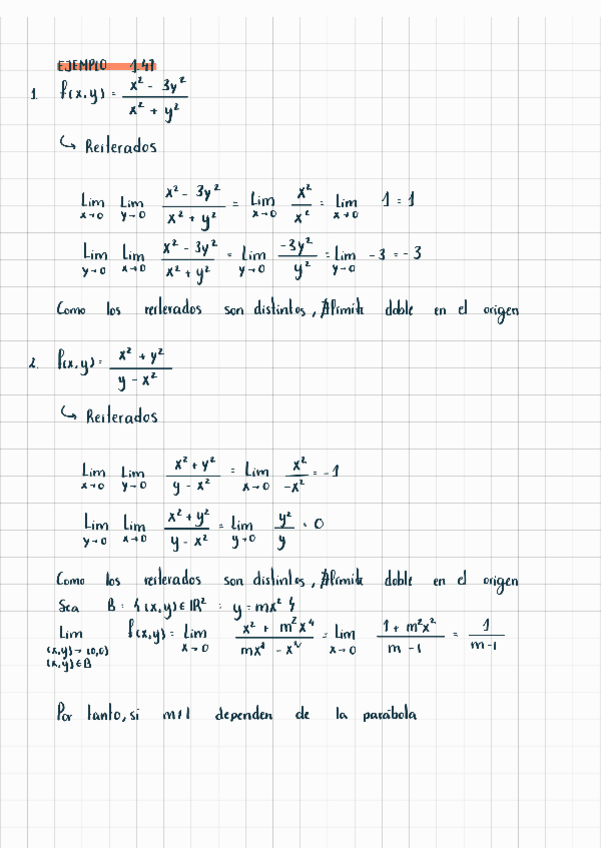 EJEMPLO 1.47
1. f(x,y) = (x² - 3y²)/(x² + y²)
↳ Reiterados
Lim x→0 Lim y→0 (x² - 3y²)/(x² + y²) = Lim x→0 x²/x² = Lim x→0 1 = 1
Lim y→0 Lim x→0 (x² - 3y²)/(x² + y²) = Lim y→0 -3y²/y² = Lim y→0 -3 = -3
Como los reiterados son distintos, ∄ límite doble en el origen
2. f(x,y) = (x² + y²)/(y - x²)
↳ Reiterados
Lim x→0 Lim y→0 (x² + y²)/(y - x²) = Lim x→0 x²/-x² = -1
Lim y→0 Lim x→0 (x² + y²)/(y - x²) = Lim y→0 y²/y = 0
Como los reiterados son distintos, ∄ límite doble en el origen
Sea B = {(x,y) ∈ ℝ² : y = mx²}
Lim (x,y)→(0,0) (x,y)∈B f(x,y) = Lim x→0 (x² + m²x⁴)/(mx² - x²) = Lim x→0 (1 + m²x²)/(m - 1) = 1/(m-1)
Por tanto, si m≠1 dependen de la parábola